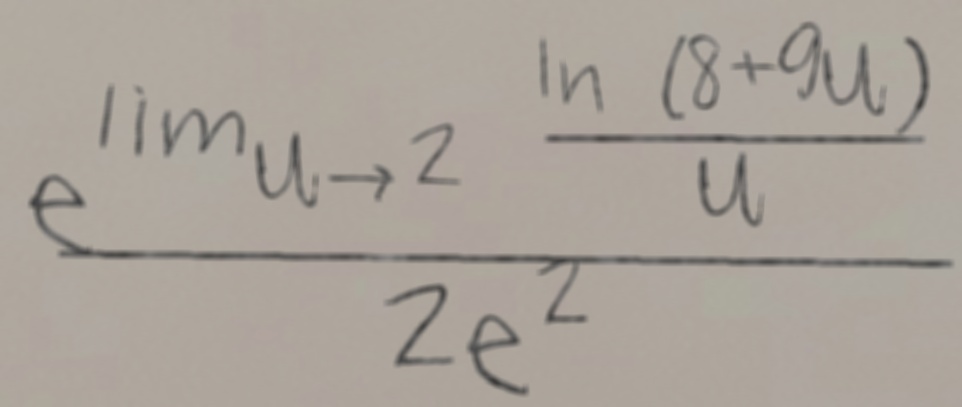 \frac{e^{\lim_{u \to 2} \frac{\ln (8+9u)}{u}}}{2e^2}